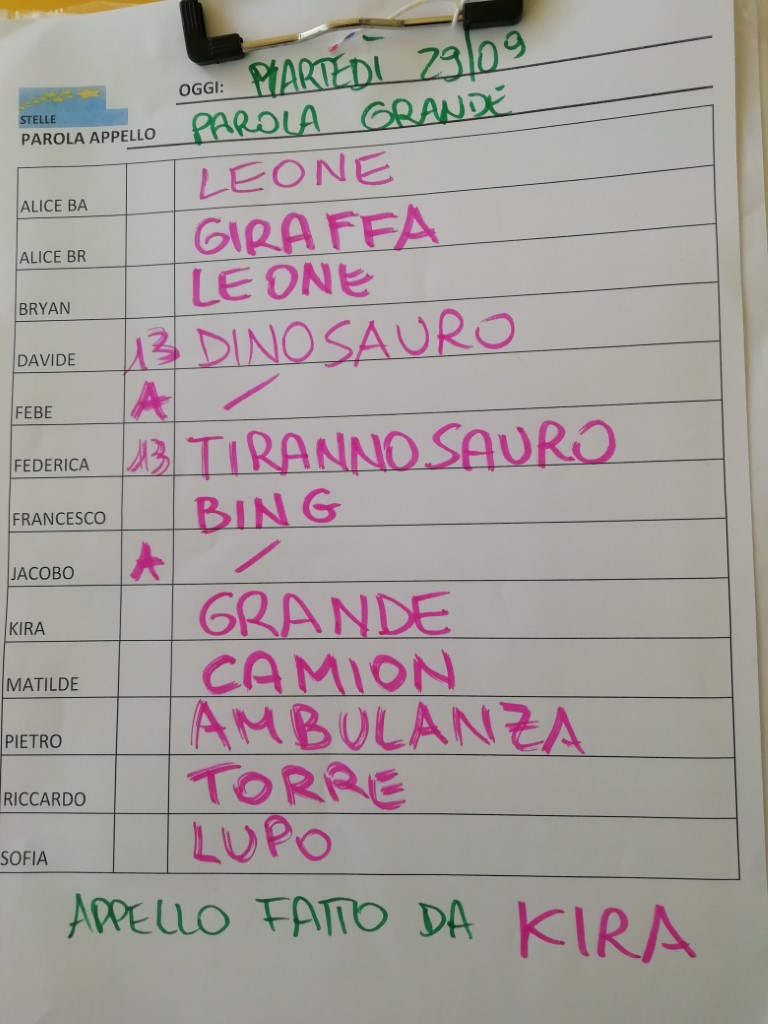 OGGI: MARTEDÌ 29/09
STELLE
PAROLA APPELLO PAROLA GRANDE
ALICE BA LEONE
ALICE BR GIRAFFA
BRYAN LEONE
DAVIDE 13 DINOSAURO
FEBE A /
FEDERICA 13 TIRANNOSAURO
FRANCESCO BING
JACOBO A /
KIRA GRANDE
MATILDE CAMION
PIETRO AMBULANZA
RICCARDO TORRE
SOFIA LUPO
APPELLO FATTO DA KIRA